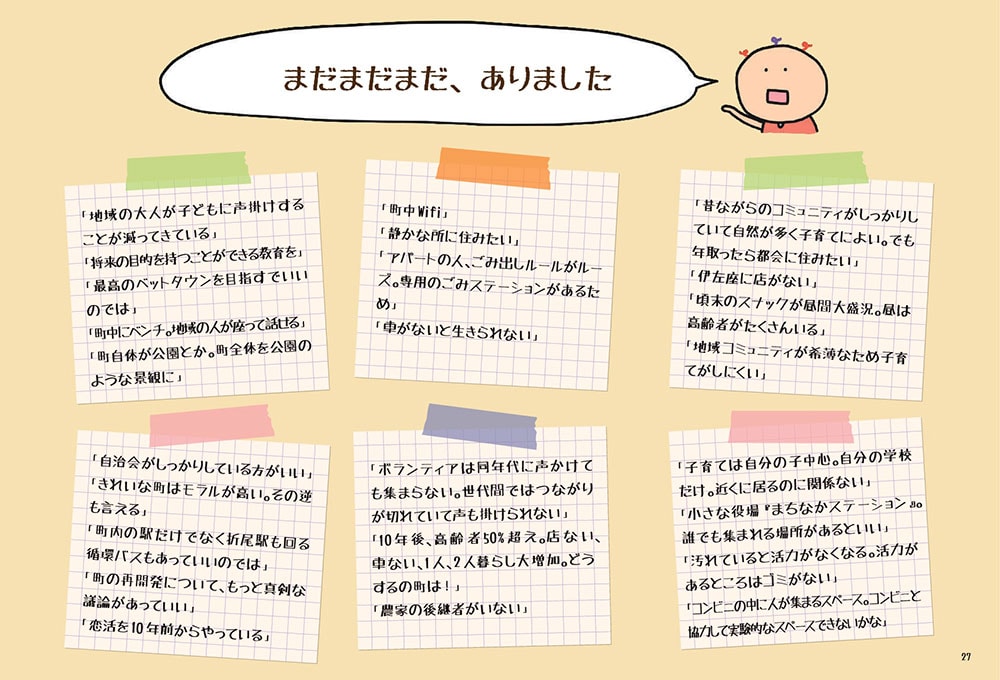 まだまだまだ、ありました
「地域の大人が子どもに声掛けする
ことが減ってきている」
「将来の目的を持つことができる教育を」
「最高のベットタウンを目指すでいい
のでは」
「町中にベンチ。地域の人が座って話せる」
「町自体が公園とか。町全体を公園の
ような景観に」
「町中Wifi」
「静かな所に住みたい」
「アパートの人、ごみ出しルールがルー
ズ。専用のごみステーションがあるた
め」
「車がないと生きられない」
「昔ながらのコミュニティがしっかりし
ていて自然が多く子育てによい。でも
年取ったら都会に住みたい」
「伊左座に店がない」
「頃末のスナックが昼間大盛況。昼は
高齢者がたくさんいる」
「地域コミュニティが希薄なため子育
てがしにくい」
「自治会がしっかりしている方がいい」
「きれいな町はモラルが高い。その逆
も言える」
「町内の駅だけでなく折尾駅も回る
循環バスもあっていいのでは」
「町の再開発について、もっと真剣な
議論があっていい」
「恋活を10年前からやっている」
「ボランティアは同年代に声かけて
も集まらない。世代間ではつながり
が切れていて声も掛けられない」
「10年後、高齢者50%超え。店ない、
車ない、1人、2人暮らし大増加。どう
するの町は!」
「農家の後継者がいない」
「子育ては自分の子中心。自分の学校
だけ。近くに居るのに関係ない」
「小さな役場『まちなかステーション』。
誰でも集まれる場所があるといい」
「汚れていると活力がなくなる。活力が
あるところはゴミがない」
「コンビニの中に人が集まるスペース。コンビニと
協力して実験的なスペースできないかな」
27